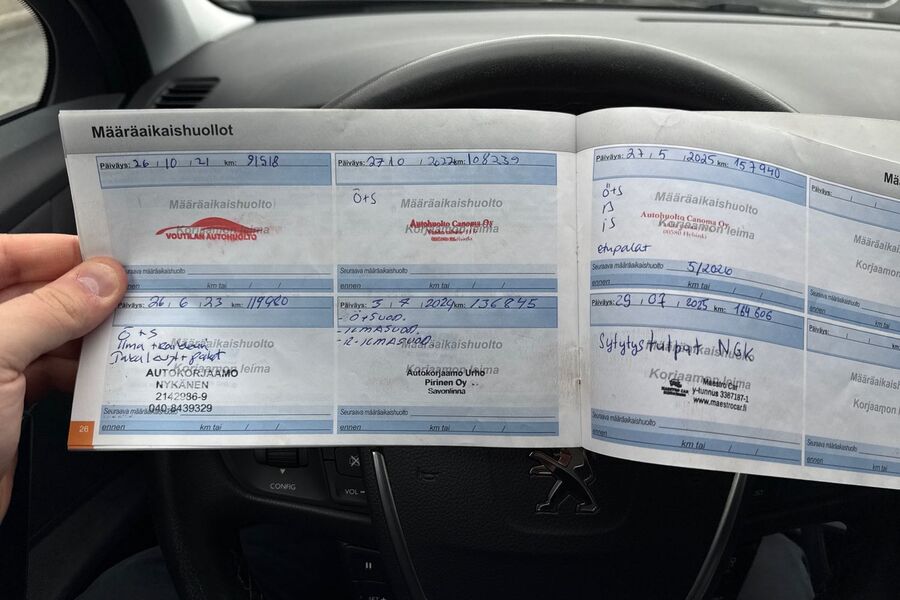 Määräaikaishuollot
Päiväys: 26 , 10 , 21 km: 91518
Määräaikaishuolto
Korjaamon leima
VOUTILAN AUTOHUOLTO
Seuraava määräaikaishuolto
ennen km tai / /
Päiväys: 27 10 , 2022 km: 108239
Ö+S
Määräaikaishuolto
Korjaamon leima
Autohuolto Canoma Oy
00580 Helsinki
Seuraava määräaikaishuolto
ennen km tai / /
Päiväys: 26 , 6 , 23 km: 119480
Ö+S
Määräaikaishuolto
Korjaamon leima
AUTOKORJAAMO
NYKÄNEN
2142986-9
040-8439329
Seuraava määräaikaishuolto
ennen km tai / /
Päiväys: 3 , 7 , 2024 km: 136845
- Ö+SUOD.
- ILMASUOD.
- R-ILMASUOD.
Määräaikaishuolto
Korjaamon leima
Autokorjaamo Urho
Pirinen Oy
Savonlinna
Seuraava määräaikaishuolto
ennen km tai / /
26
Päiväys: 27 , 5 , 2025 km: 157940
Ö+S
Määräaikaishuolto
Korjaamon leima
Autohuolto Canoma Oy
00580 Helsinki
etupalat
Seuraava määräaikaishuolto 5/2026
ennen km tai / /
Päiväys: 29 , 07 , 2025 km: 164606
Määräaikaishuolto
Sytytystulpat NGK
Korjaamon leima
MAESTRO CAR
Maestro Car
y-tunnus 3387187-1
www.maestrocar.fi
Seuraava määräaikaishuolto
ennen km tai / /
Mä
Päiväys: / /
Määräaikaish
Korjaamon l
Seuraava määräaikaishuolto
ennen km
Päiväys: / /
Määräaikaish
Korjaamon
Seuraava määräaikaishuolto
ennen km tai
CONFIG
VOL −